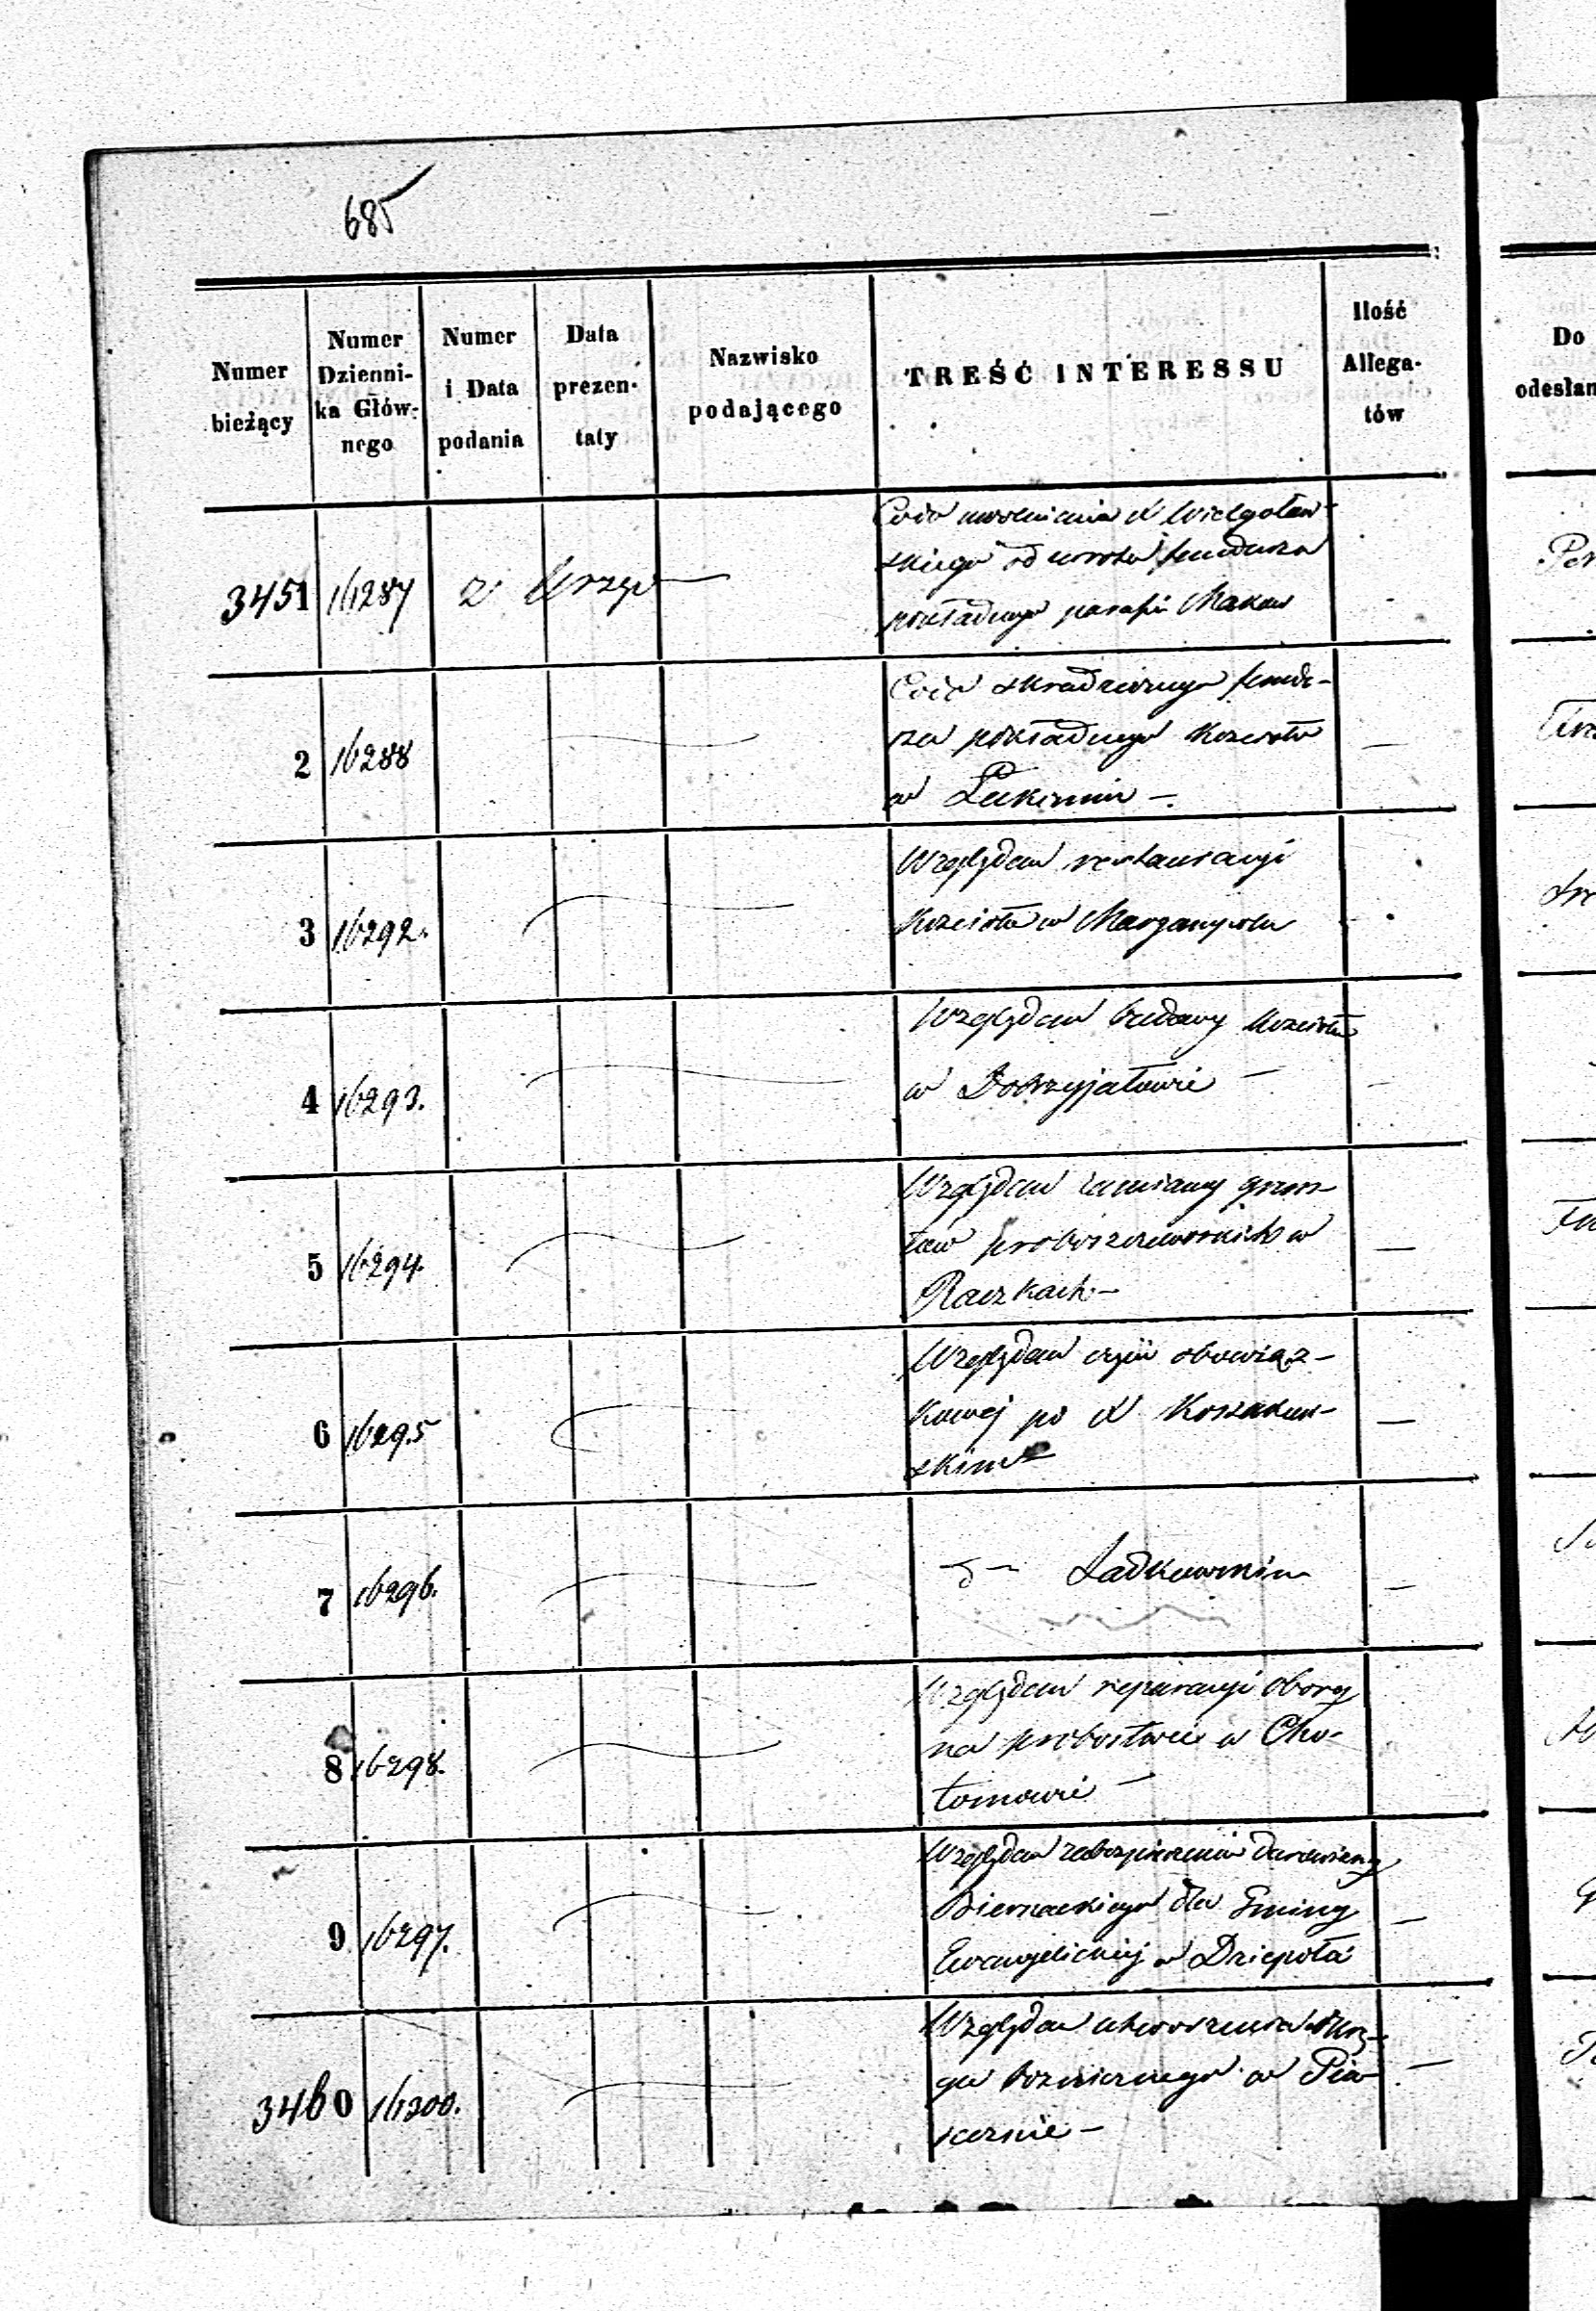 685
Numer bieżący
Numer Dziennika Głównego
Numer i Data podania
Data prezentaty
Nazwisko podającego
TREŚĆ INTERESSU
Ilość Allegatów
Do
3451 16287 z Urzęd
Co do uwolnienia X
skiego od zwrotu funduszu
pokładnego parafii Maków
2 16288
Co do skradzionego fundu-
szu pokładnego Kościoła
w
3 16292.
Względem restauracyi
Kościoła w Maryampolu
4 16293.
Względem budowy Kościoła
w Dobrzyjałowie —
5 16294.
Względem zamiany grun-
tów proboszczowskich w
Raczkach —
6 16295
Względem czyn obowiąz-
kowej po X
skim
7 16296.
— d — Ładkowskim
8 16298.
Względem reparacyi obory
na probostwie w Cho-
tomowie —
9 16297.
Względem zabezpieczenia darowizny
Biernackiego dla Gminy
Ewangelickiej w
3460 16300.
Względem utworzenia Okrę-
gu bożniczego w Pia-
secznie —